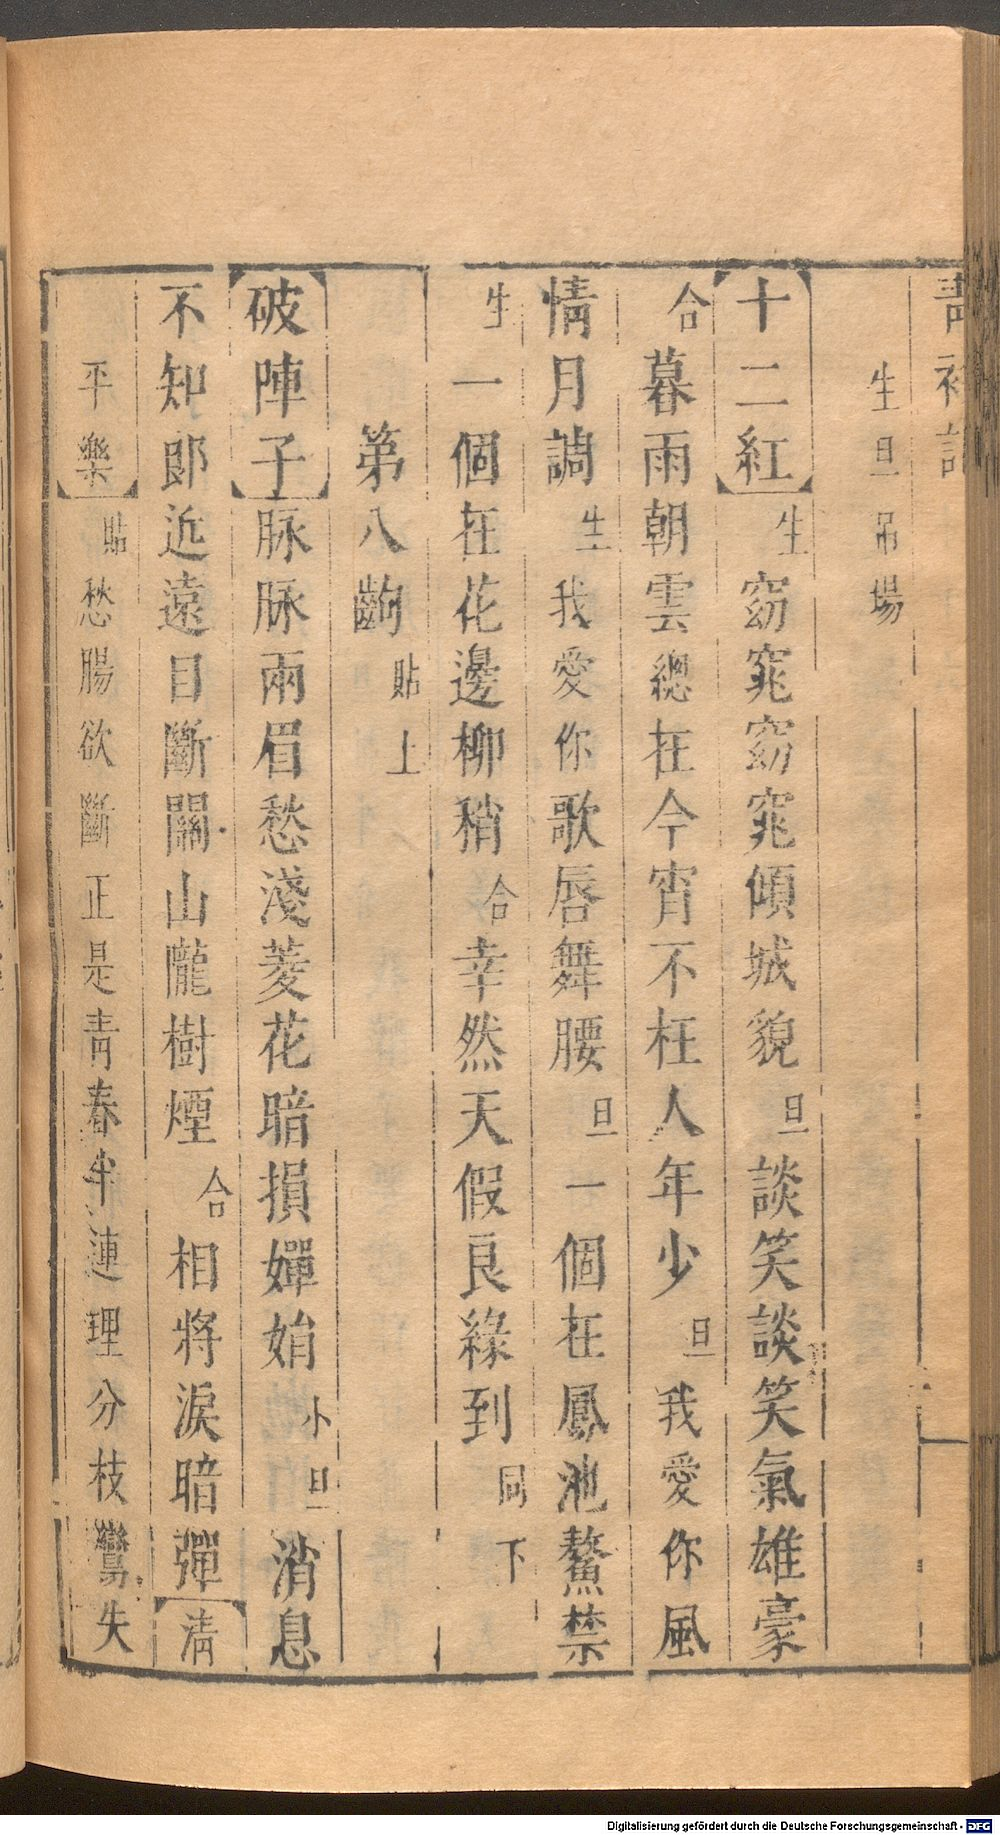 青衫記
生旦吊場
【十二紅】生窈窕窈窕傾城貌旦談笑談笑氣雄豪
合暮雨朝雲總在今宵不枉人年少旦我愛你風
情月調生我愛你歌唇舞腰旦一個在鳳池鰲禁
生一個在花邊柳稍合幸然天假良緣到同下
第八齣貼上
【破陣子】脉脉兩眉愁淺菱花暗損嬋娟小旦消息
不知郎近遠目斷關山隴樹煙合相將淚暗彈【清
平樂】貼愁腸欲斷正是青春半連理分枝鸞失
Digitalisierung gefördert durch die Deutsche Forschungsgemeinschaft - DFG